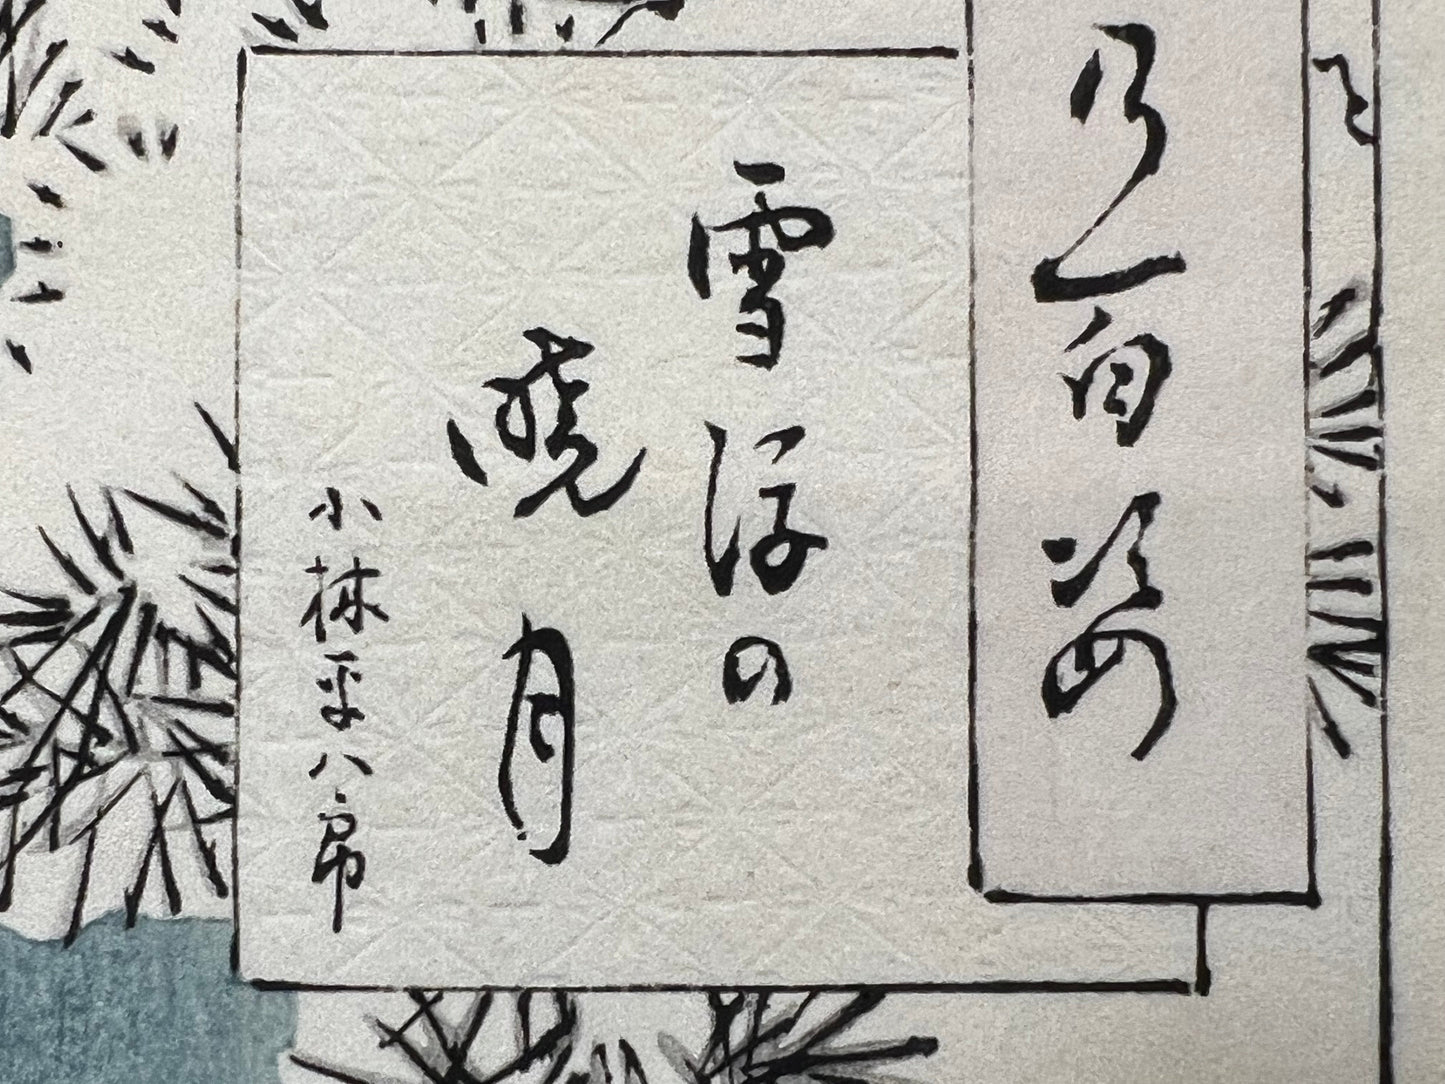 月百姿
雪後の
暁月
小林平八郎